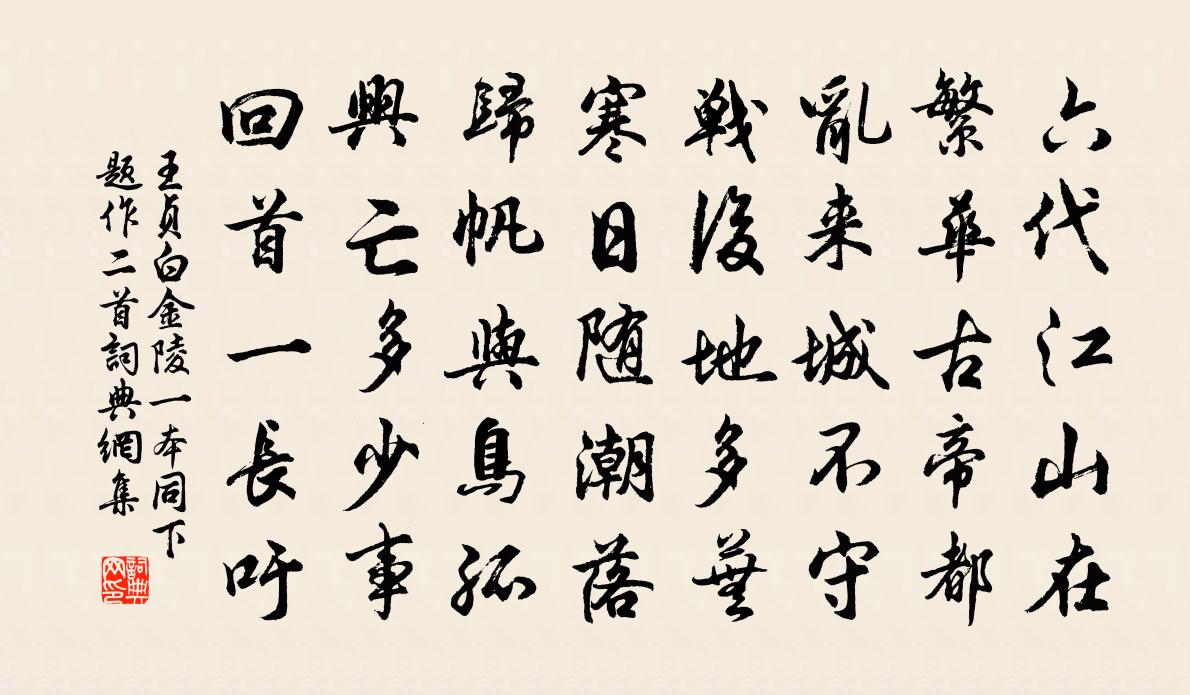 六代江山在
繁華古帝都
亂来城不守
戰後地多蕪
寒日随潮落
歸帆與鳥孤
興亡多少事
回首一長吁
王貞白金陵一本同下
題作二首詞典網集
詞典网印